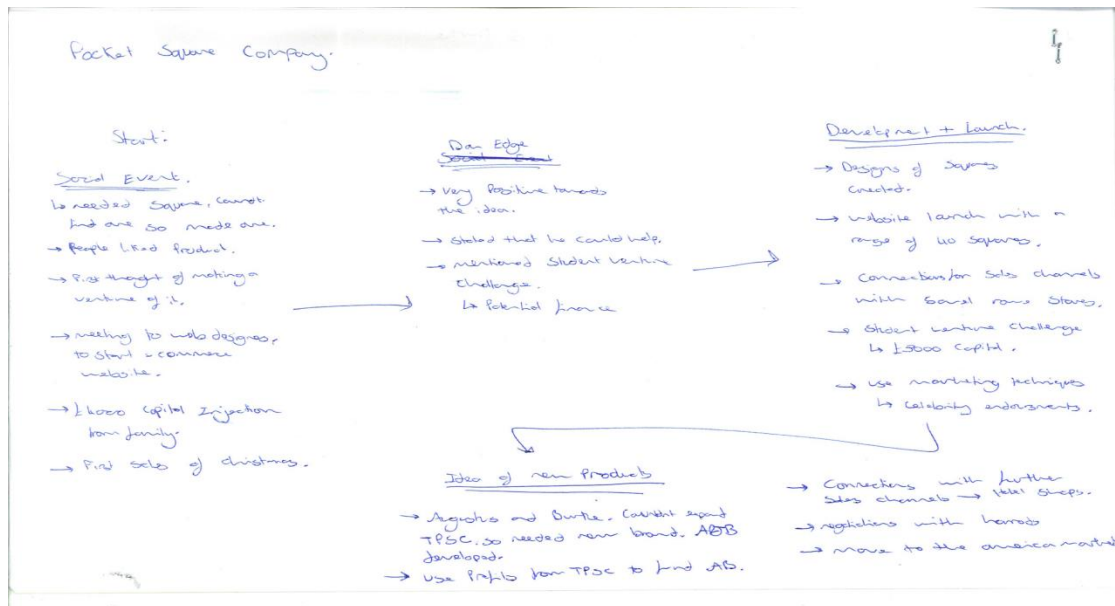 Pocket Square Company.
Start:
Social Event.
↳ needed Square, Couldn't
find one so made one.
→ People liked Product.
→ First thought of making a
venture of it.
→ meeting to web designer,
to start e-commerce
website.
→ £4000 Capital Injection
from family.
→ First sales of christmas.
Dan Edge
Social Event
→ Very Positive towards
the idea.
→ Stated that he could help.
→ mentioned Student Venture
Challenge.
↳ Potential finance
Development + Launch.
→ Designs of Squares
Created.
→ website launch with a
range of 40 squares.
→ Connections for Sales channels
with Savel row Stores.
→ Student venture Challenge
↳ Capital.
→ use marketing techniques
↳ Celebrity endorsments.
Idea of new Products
→ Augustus and Burtie. Couldn't expand
TPSC, so needed new brand.
developed.
→ Use Profits from TPSC to fund AB.
→ Connections with further
Sales channels → Hotel Shops.
→ negotiations with harrods
→ Move to the america market